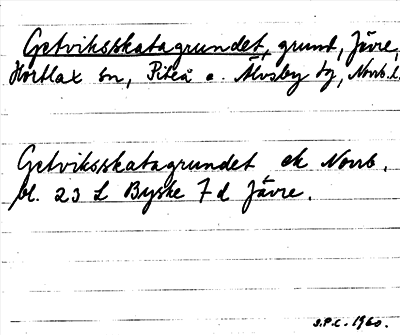 Getviksskatagrundet, grund, Jävre,
Hortlax sn, Piteå o Älvsby tg, Norrb. l.
Getviksskatagrundet ek Norrb.
bl. 23 L Byske 7 d Jävre.
S.P.C. 1960.